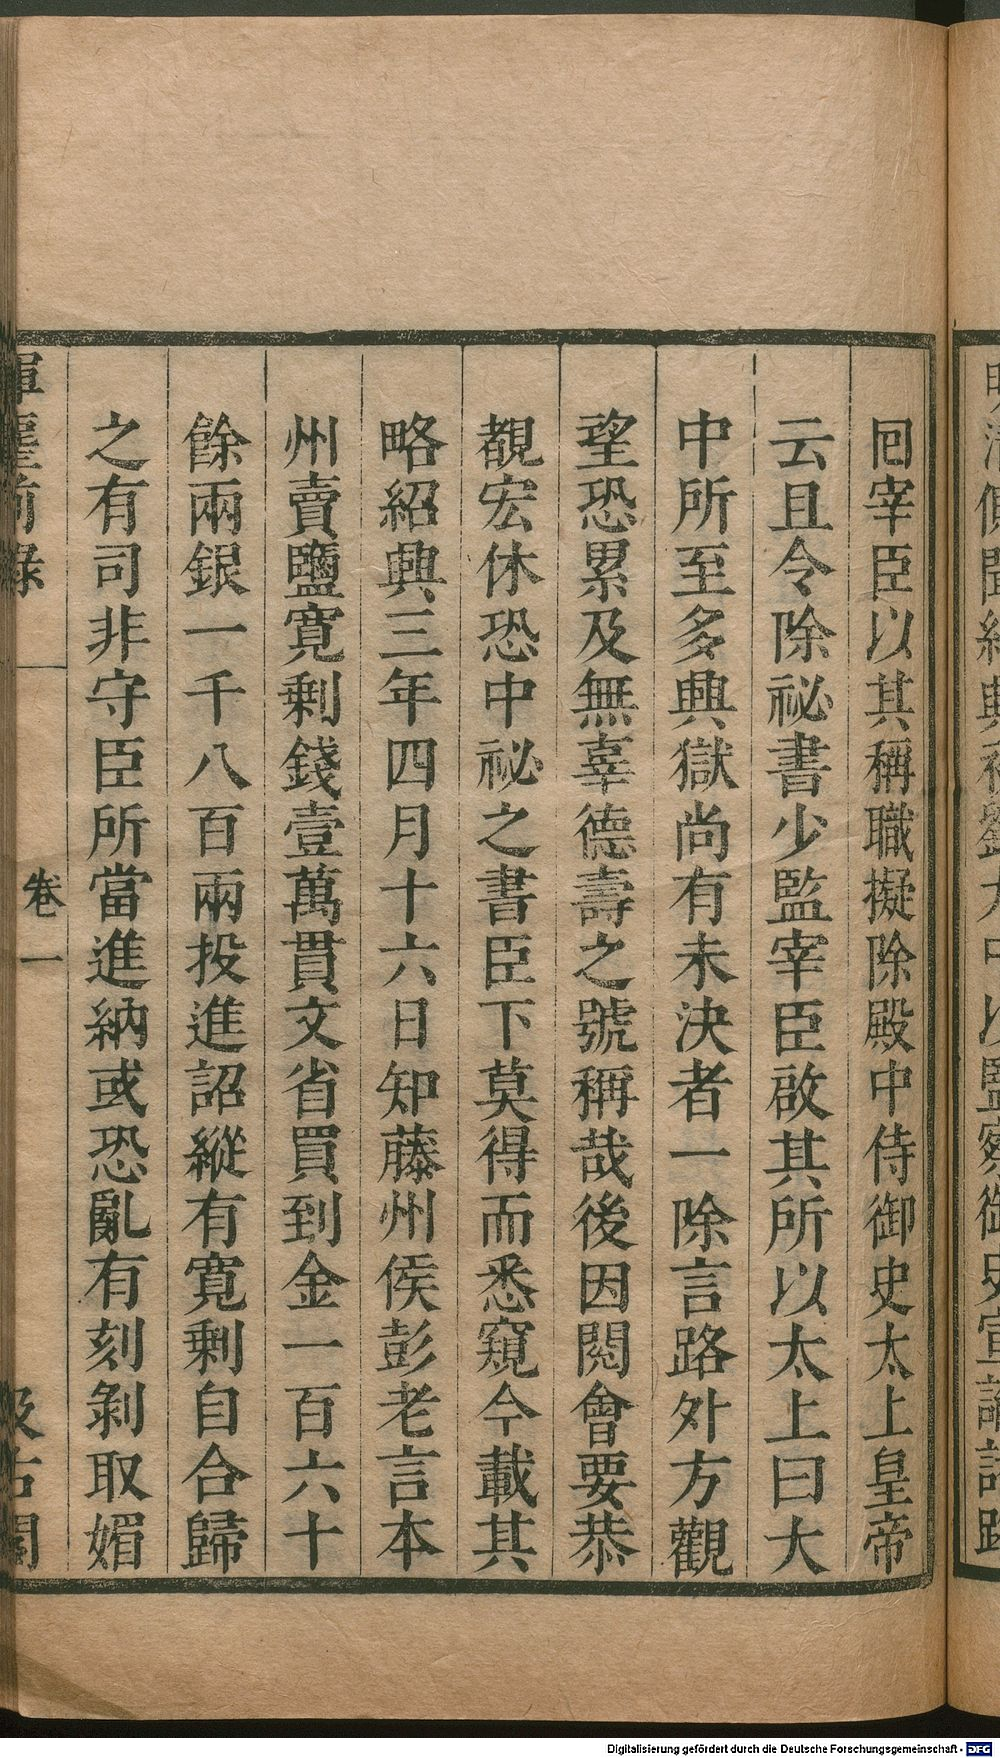 回宰臣以其稱職擬除殿中侍御史太上皇帝
云且令除祕書少監宰臣啟其所以太上曰大
中所至多興獄尚有未決者一除言路外方觀
望恐累及無辜德壽之號稱哉後因閱會要恭
覩宏休恐中祕之書臣下莫得而悉窺今載其
略紹興三年四月十六日知藤州侯彭老言本
州賣鹽寬剩錢壹萬貫文省買到金一百六十
餘兩銀一千八百兩投進詔縱有寬剩自合歸
之有司非守臣所當進納或恐亂有刻剝取媚
揮麈前錄 卷一 汲古閣
Digitalisierung gefördert durch die Deutsche Forschungsgemeinschaft - DFG